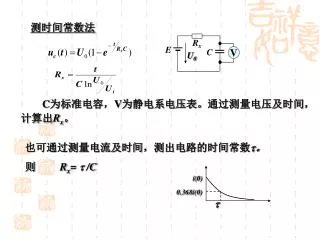 测时间常数法
u_c(t) = U_0(1 - e^{-t/(R_x C)})
R_x = t / (C ln(U_0/U_t))
E
R_x
U_0
C
V
C为标准电容，V为静电系电压表。通过测量电压及时间，
计算出R_x。
也可通过测量电流及时间，测出电路的时间常数τ。
则 R_x= τ /C
i(0)
0.368i(0)
τ